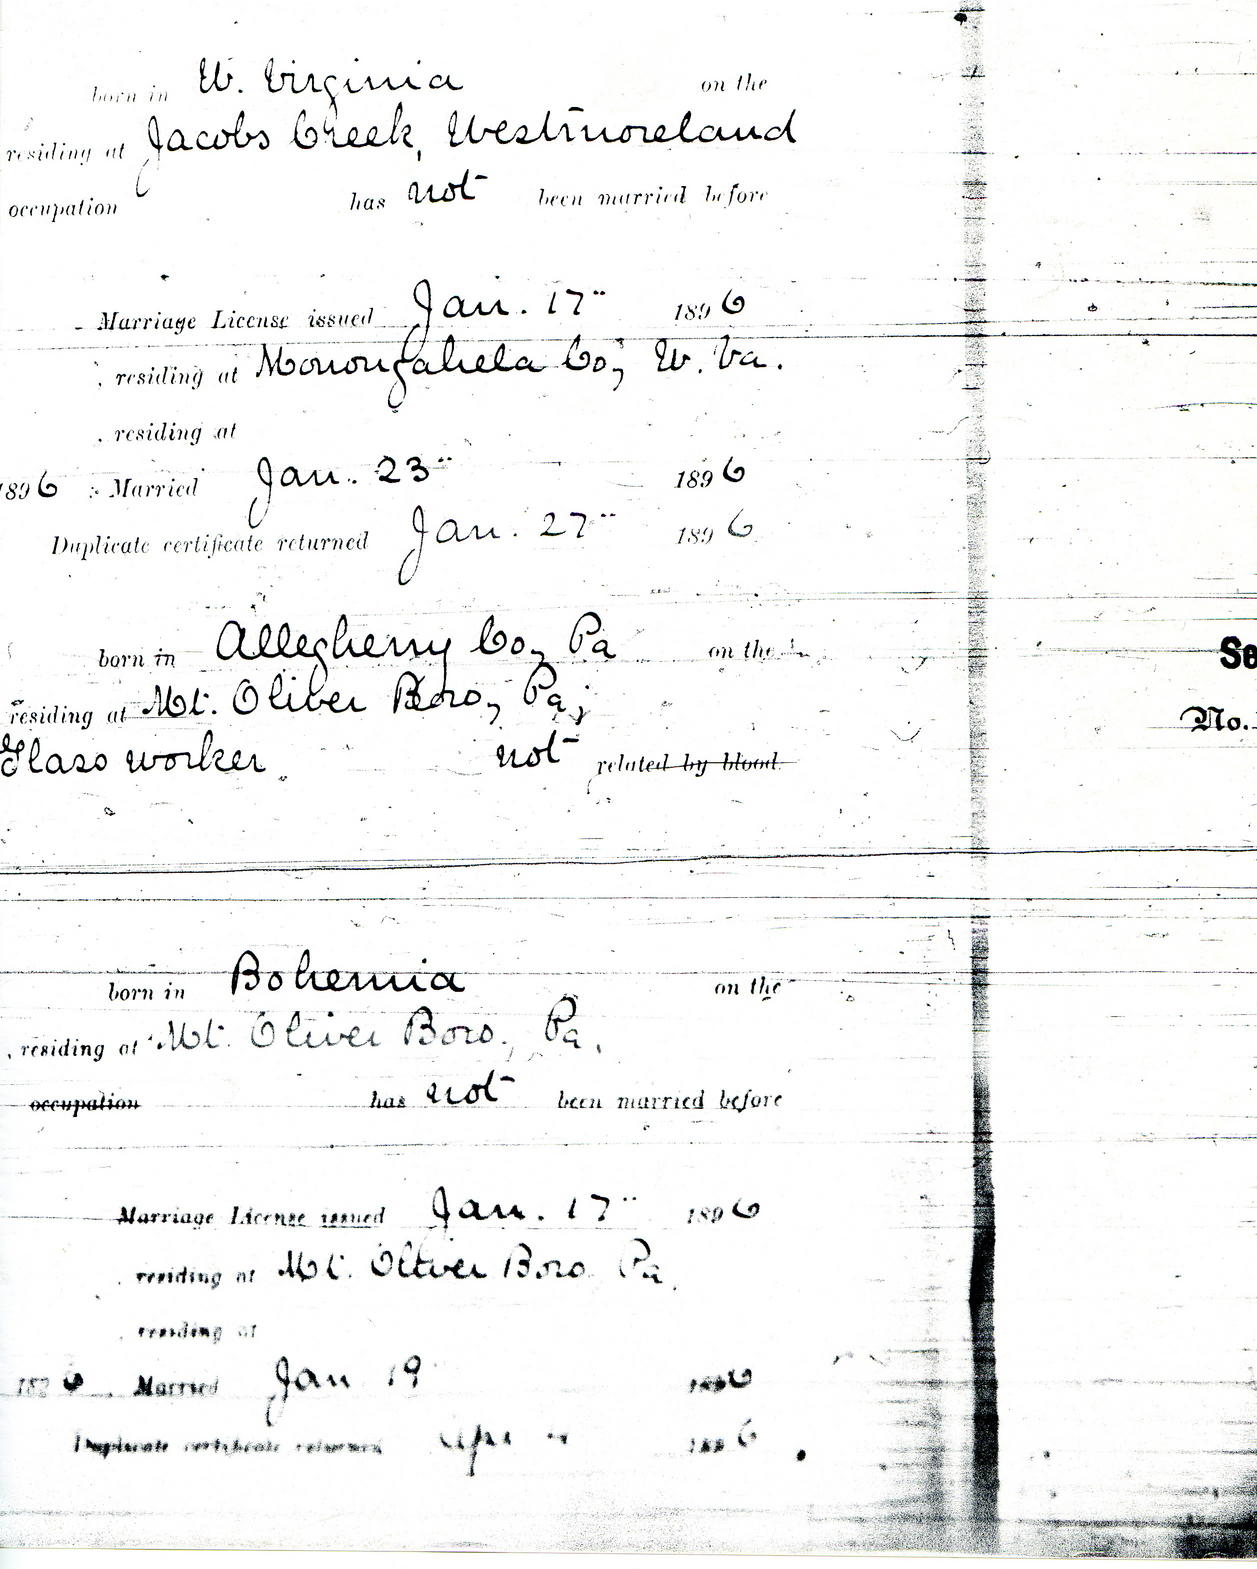 born in W. Virginia on the
residing at Jacobs Creek, Westmoreland
occupation has not been married before
Marriage License issued Jan. 17" 1896
, residing at Monongahela Co; W. Va.
, residing at
1896 : Married Jan. 23" 1896
Duplicate certificate returned Jan. 27" 1896
born in Allegheny Co, Pa on the
Se
residing at Mt. Oliver Boro, Pa;
No.
Glass worker not related by blood.
born in Bohemia on the
, residing at Mt. Oliver Boro, Pa.
occupation has not been married before
Marriage License issued Jan. 17" 1896
, residing at Mt. Oliver Boro Pa.
, residing at
1896 . Married Jan 19 1896
Duplicate certificate returned 1896